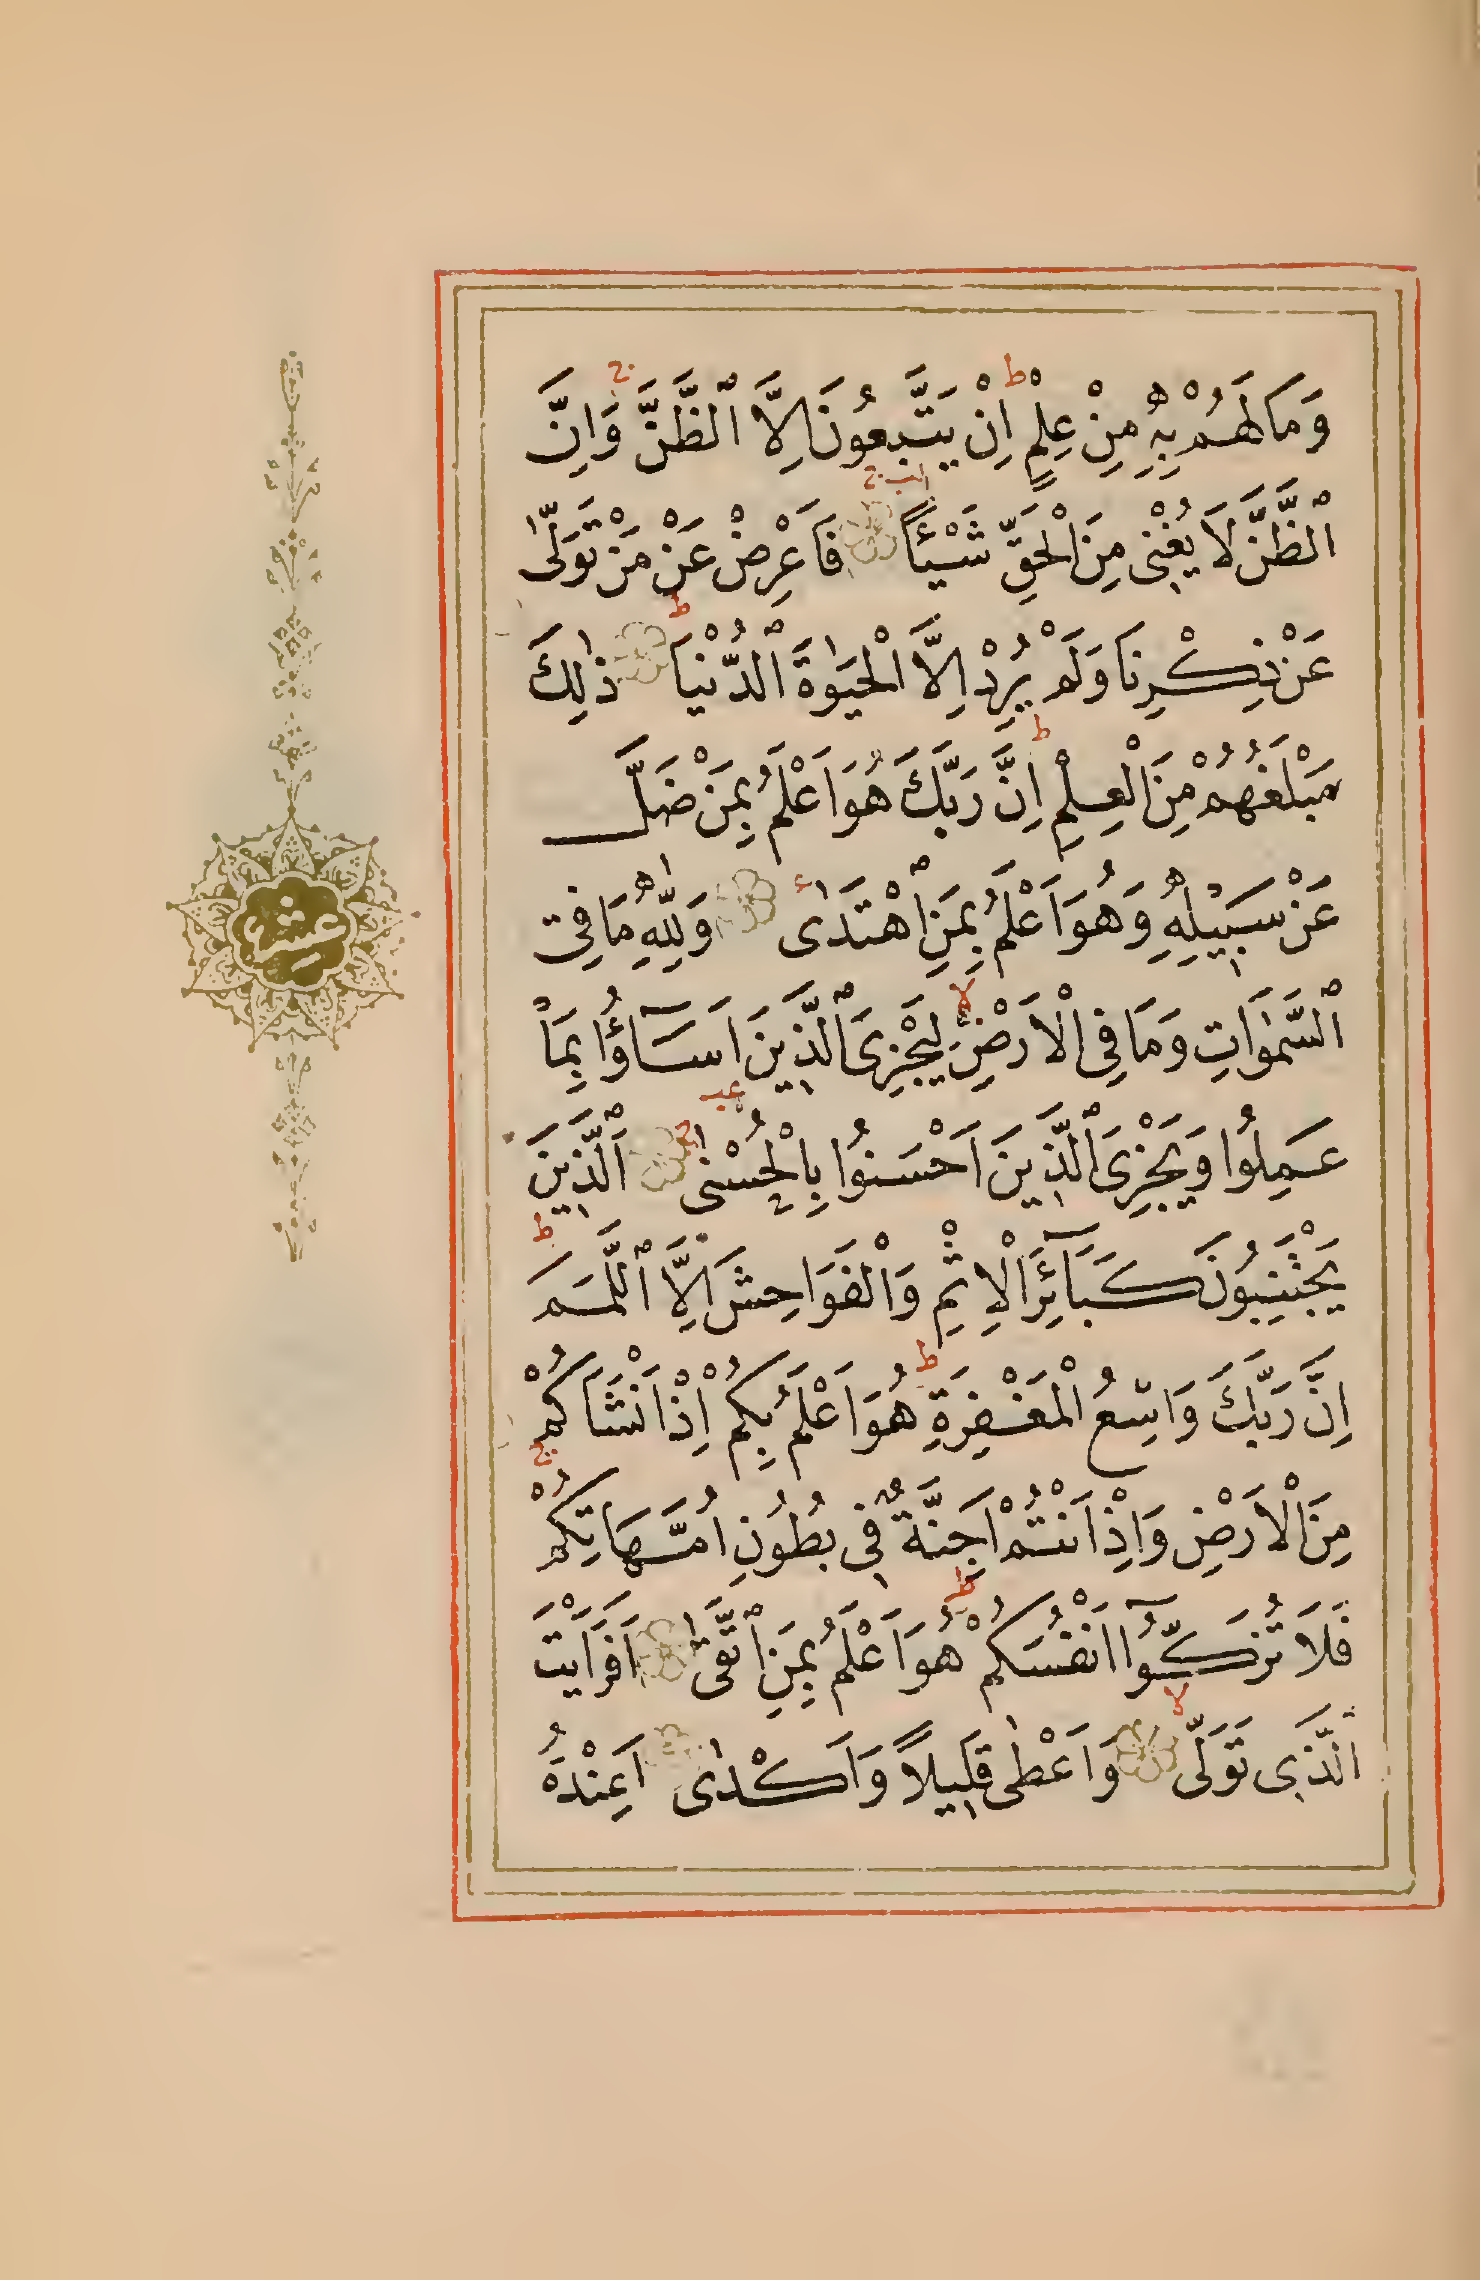 وَمَا لَهُمْ بِهِ مِنْ عِلْمٍ اِنْ يَتَّبِعُونَ اِلَّا الظَّنَّ وَاِنَّ
الظَّنَّ لَا يُغْنِى مِنَ الْحَقِّ شَيْئًا فَاَعْرِضْ عَنْ مَنْ تَوَلّٰى
عَنْ ذِكْرِنَا وَلَمْ يُرِدْ اِلَّا الْحَيٰوةَ الدُّنْيَا ذٰلِكَ
مَبْلَغُهُمْ مِنَ الْعِلْمِ اِنَّ رَبَّكَ هُوَ اَعْلَمُ بِمَنْ ضَلَّ
عَنْ سَبِيْلِهِ وَهُوَ اَعْلَمُ بِمَنِ اهْتَدٰى وَلِلّٰهِ مَا فِى
السَّمٰوَاتِ وَمَا فِى الْاَرْضِ لِيَجْزِىَ الَّذِينَ اَسَآؤُا بِمَا
عَمِلُوا وَيَجْزِىَ الَّذِينَ اَحْسَنُوا بِالْحُسْنٰى اَلَّذِينَ
يَجْتَنِبُونَ كَبَآئِرَ الْاِثْمِ وَالْفَوَاحِشَ اِلَّا اللَّمَمَ
اِنَّ رَبَّكَ وَاسِعُ الْمَغْفِرَةِ هُوَ اَعْلَمُ بِكُمْ اِذْ اَنْشَاَكُمْ
مِنَ الْاَرْضِ وَاِذْ اَنْتُمْ اَجِنَّةٌ فِى بُطُونِ اُمَّهَاتِكُمْ
فَلَا تُزَكُّوٓا اَنْفُسَكُمْ هُوَ اَعْلَمُ بِمَنِ اتَّقٰى اَفَرَاَيْتَ
الَّذِى تَوَلّٰى وَاَعْطٰى قَلِيلًا وَاَكْدٰى اَعِنْدَهُ
عشر